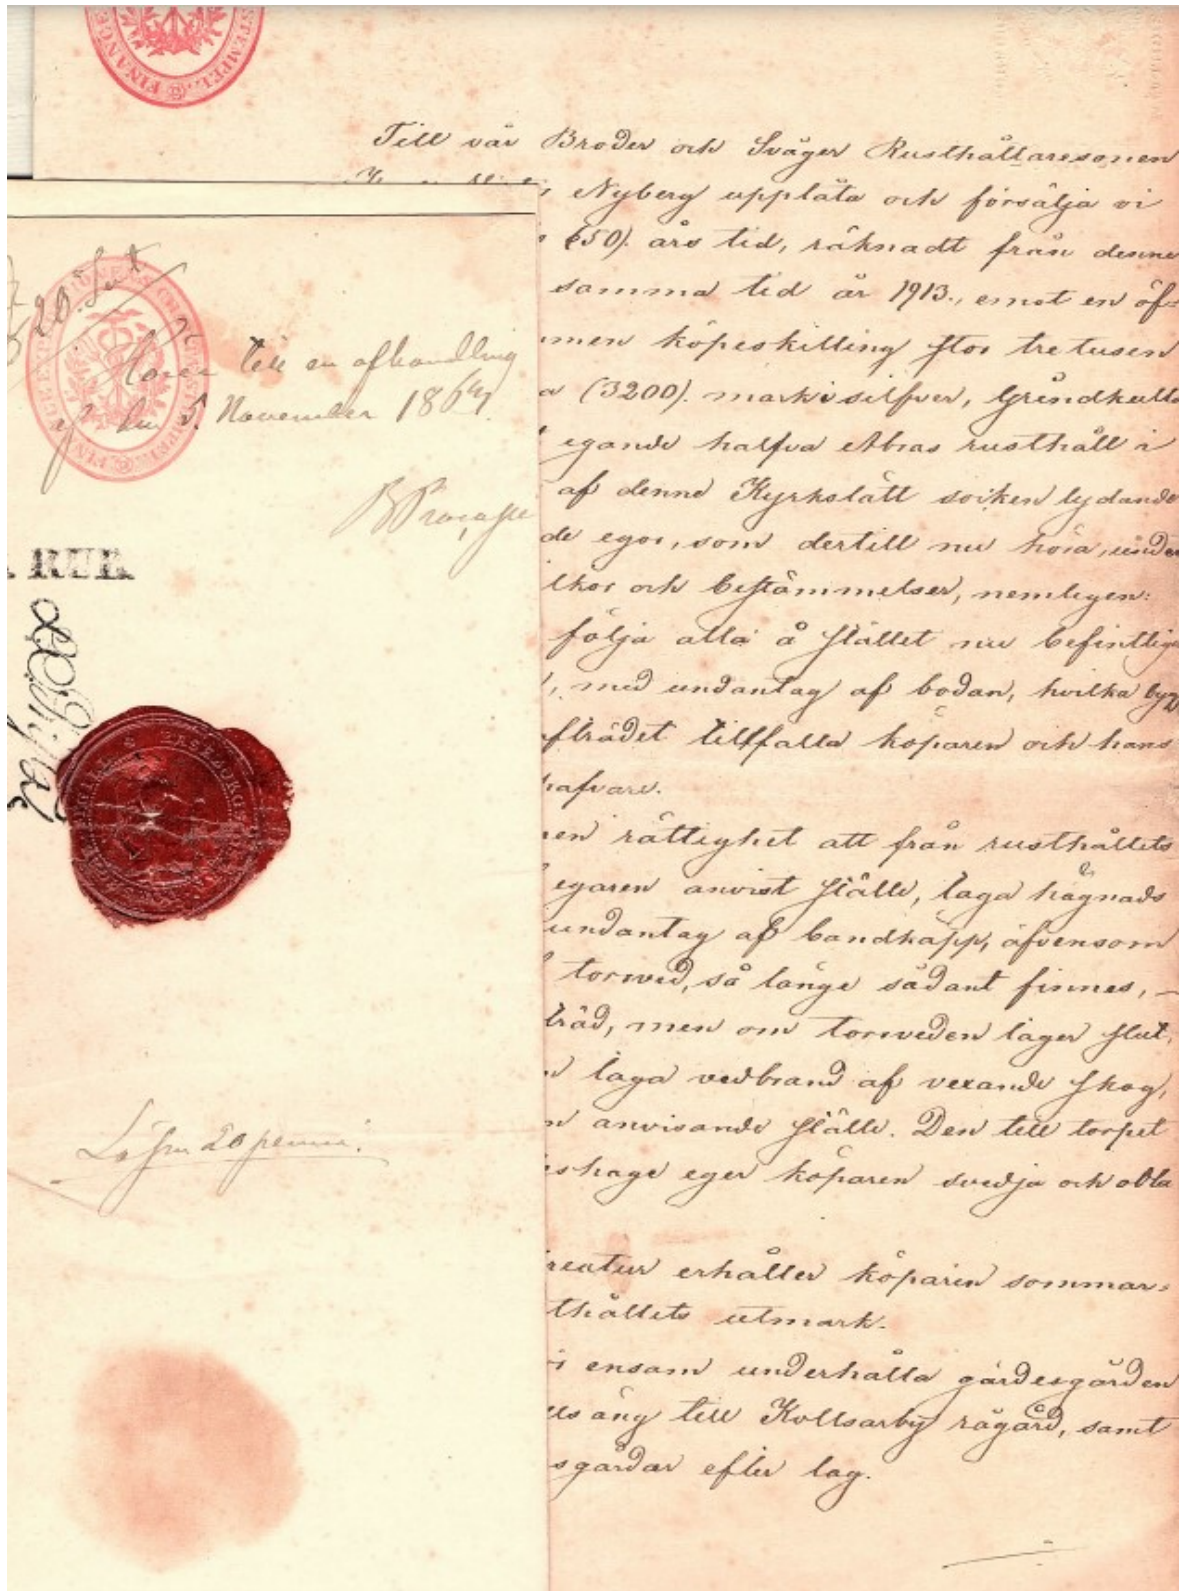 STEMPEL. FINANCE
Till vår Broder och Svåger Rusthållaresonen
Nyberg upplåta och försälja vi
(50). års tid, räknadt från denne
samma tid år 1913., emot en öf-
men köpeskilling stor tretusen
a (3200). mark i silfver, Grindkulla
egande halfva Abras rusthåll i
af denne Kyrkslätt socken lydande
de egor, som dertill nu höra, under
lkor och bestämmelser, nemligen:
följa alla å stället nu befintlige
, med undantag af bodan, hvilka byg
fträdet tillfalla köparen och hans
hafvare.
en rättighet att från rusthållets
egaren anvist ställe, taga hägnads
undantag af bandkäpp, äfvensom
torrved, så länge sådant finnes, –
träd, men om torrveden tager slut,
taga vedbrand af vexande skog,
n anvisande ställe. Den till torpet
shage eger köparen svedja och odla
reatur erhåller köparen sommar-
thållets utmark.
i ensam underhålla gärdesgården
lls äng till Kollsarby rågård, samt
sgårdar efter lag.
20
Hörer till en afhandling
af den 5. November 1864.
RUB.
20 penni.